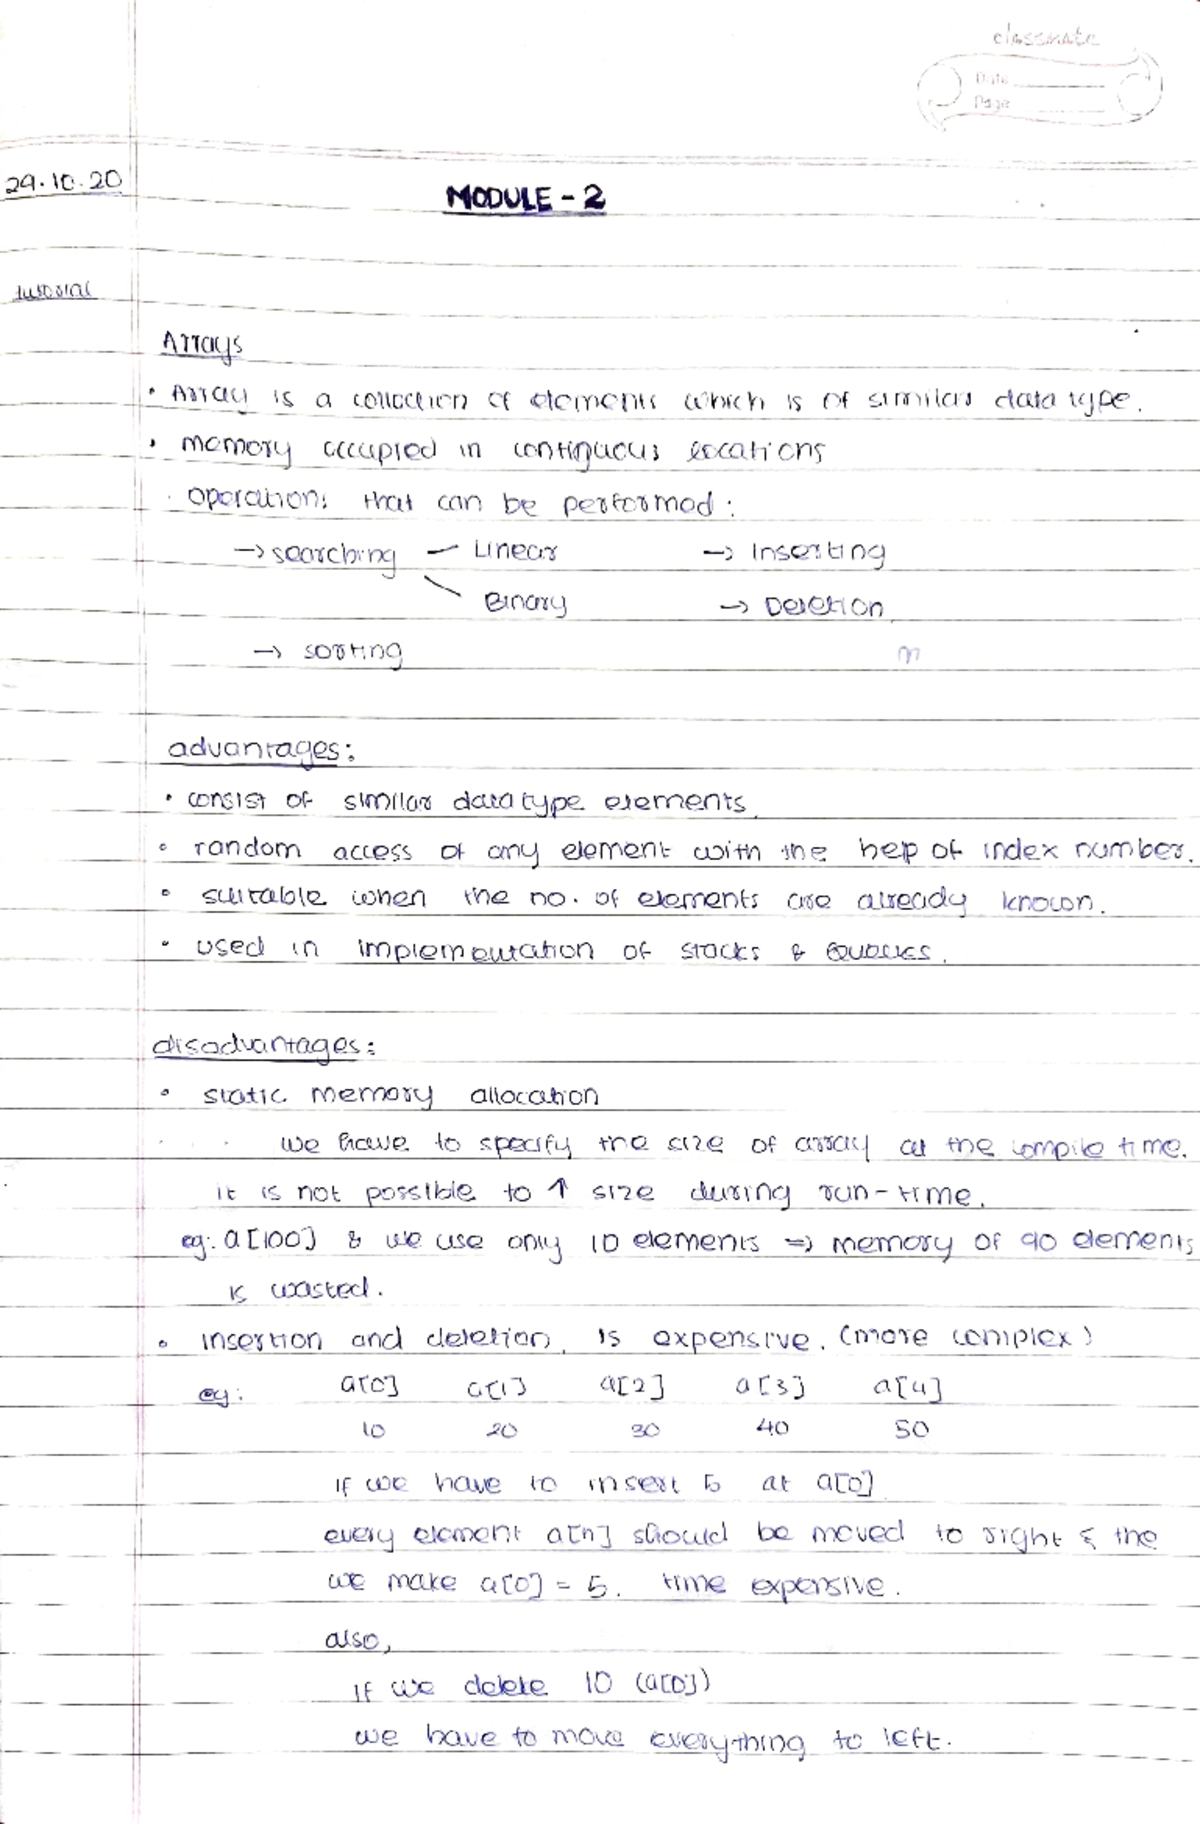 classmate
Date
Page
29.10.20
MODULE - 2
tutorial
Arrays
• Array is a collection of elements which is of similar data type.
• memory occupied in contiguous locations
· operations that can be performed:
→ searching — Linear → Inserting
\ Binary → Deletion
→ sorting
n
advantages:
• consist of similar datatype elements.
• random access of any element with the help of index number.
• suitable when the no. of elements are already known.
• used in implementation of stacks & Queues.
disadvantages:
• static memory allocation
we have to specify the size of array at the compile time.
it is not possible to ↑ size during run-time.
eg: a[100] & we use only 10 elements => memory of 90 elements
is wasted.
• insertion and deletion is expensive. (more complex)
eg: a[0] a[1] a[2] a[3] a[4]
10 20 30 40 50
If we have to insert 5 at a[0]
every element a[n] should be moved to right & the
we make a[0] = 5. time expensive.
also,
If we delete 10 (a[0])
we have to move everything to left.